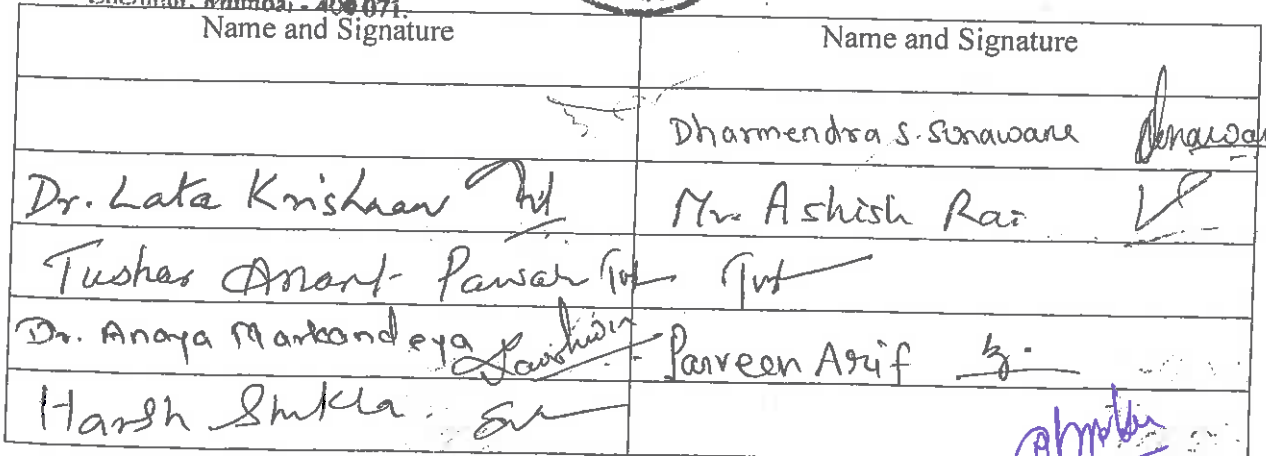 Chembur, Mumbai - 400 071.
Name and Signature Name and Signature
Dharmendra S. Sonawane
Dr. Lata Krishnan Mr. Ashish Rai
Tushar Anant Pawar
Dr. Anaya Markandeya Parveen Arif
Harsh Shukla